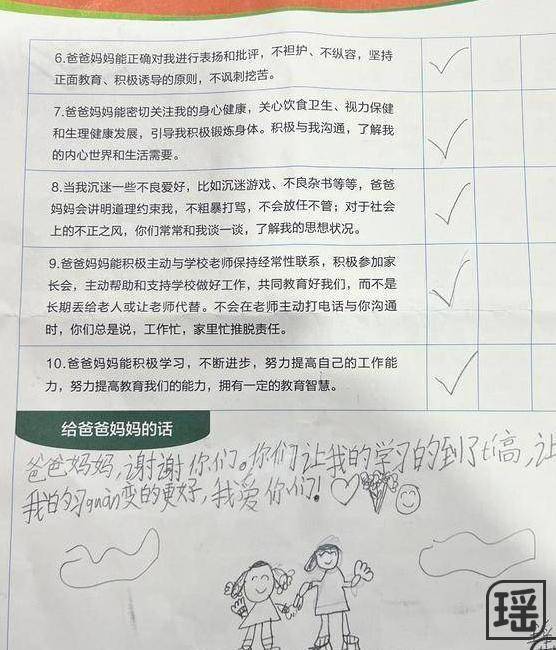 6.爸爸妈妈能正确对我进行表扬和批评，不袒护、不纵容，坚持
正面教育、积极诱导的原则，不讽刺挖苦。
7.爸爸妈妈能密切关注我的身心健康，关心饮食卫生、视力保健
和生理健康发展，引导我积极锻炼身体。积极与我沟通，了解我
的内心世界和生活需要。
8.当我沉迷一些不良爱好，比如沉迷游戏、不良杂书等等，爸爸
妈妈会讲明道理约束我，不粗暴打骂，不会放任不管；对于社会
上的不正之风，你们常常和我谈一谈，了解我的思想状况。
9.爸爸妈妈能积极主动与学校老师保持经常性联系，积极参加家
长会，主动帮助和支持学校做好工作，共同教育好我们，而不是
长期丢给老人或让老师代替。不会在老师主动打电话与你沟通
时，你们总是说，工作忙，家里忙推脱责任。
10.爸爸妈妈能积极学习，不断进步，努力提高自己的工作能
力，努力提高教育我们的能力，拥有一定的教育智慧。
给爸爸妈妈的话
爸爸妈妈，谢谢你们。你们让我的学习的到了tí高，让
我的习guàn变的更好，我爱你们！
瑶